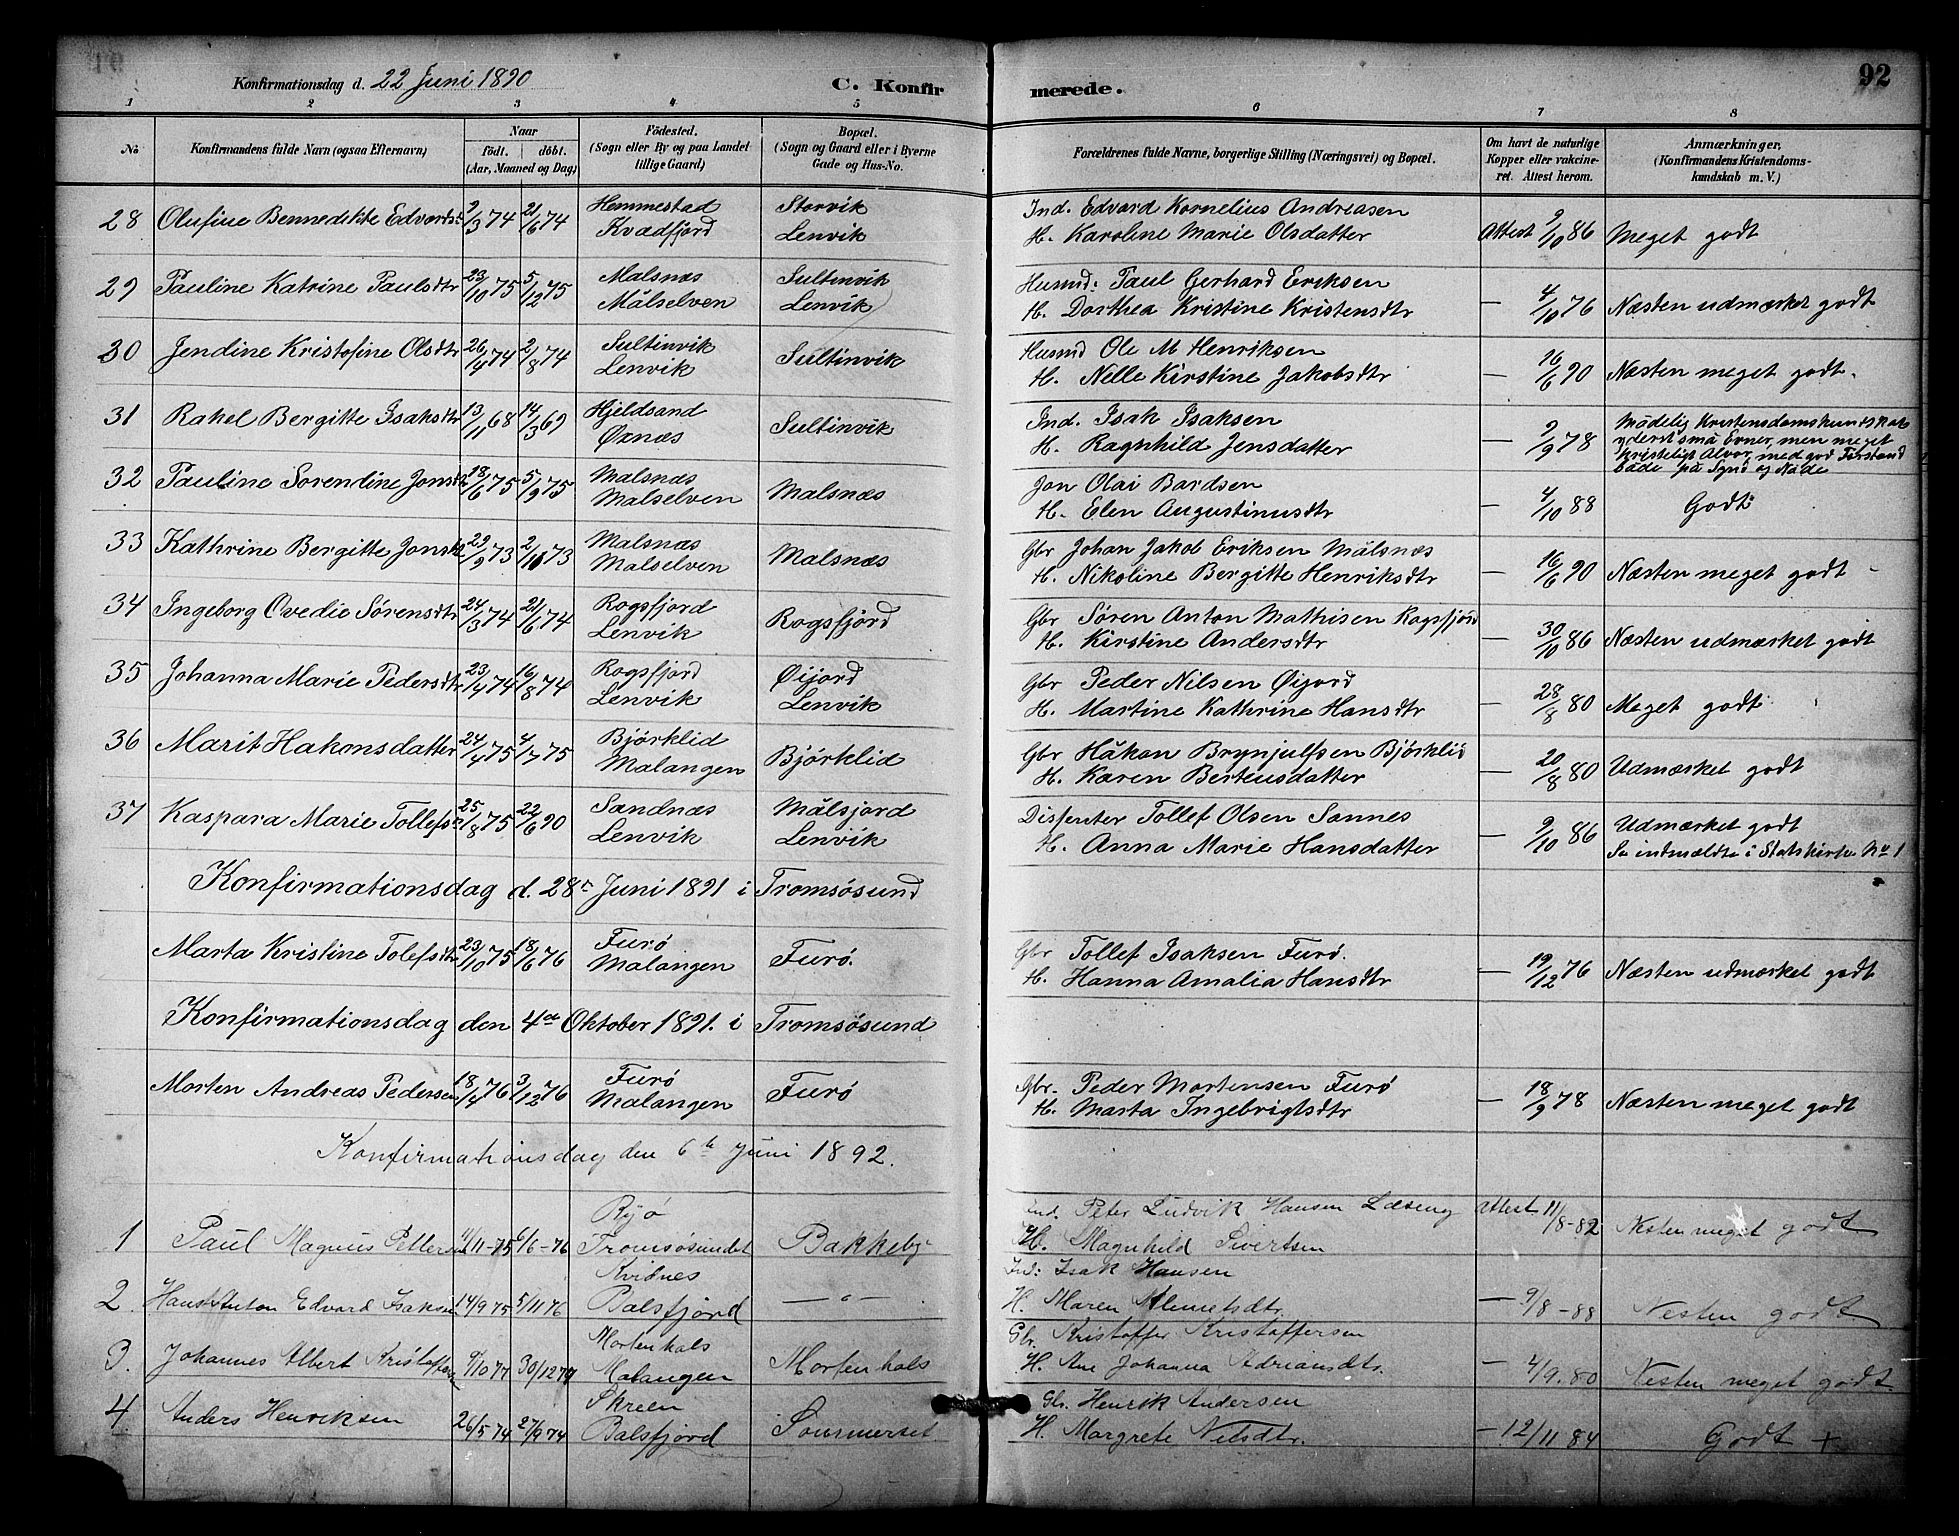 Konfirmationsdag d. 22 Juni 1890
C. Konfirmerede.
92
1 2 3 4 5 6 7 8
No.
Konfirmandens fulde Navn (ogsaa Efternavn)
Naar
födt. döbt.
(Aar, Maaned og Dag)
Födested.
(Sogn eller By og paa Landet
tillige Gaard)
Bopæl.
(Sogn og Gaard eller i Byerne
Gade og Hus-No.
Forældrenes fulde Navne, borgerlige Stilling (Næringsvei) og Bopæl.
Om havt de naturlige
Kopper eller vakcine-
ret. Attest herom.
Anmærkninger,
(Konfirmandens Kristendoms-
kundskab m. V.)
28 Olufine Bennedikte Edvards 9/3 74 21/6 74 Hemmestad Kvædfjord Storvik Lenvik Ind. Edvard Kornelius Andreasen
H. Karoline Marie Olsdatter Attest 9/10 86 Meget godt
29 Pauline Katrine Paulsdtr 23/10 75 5/12 75 Malsnæs Målselven Sultinvik Lenvik Husmd: Paul Gerhard Eriksen
H. Dorthea Kristine Kristensdtr — 4/10 76 Næsten udmærket godt
30 Jendine Kristofine Olsdtr 26/4 74 2/8 74 Sultinvik Lenvik Sultinvik Husmd Ole M Henriksen
H. Nelle Kirstine Jakobsdtr — 16/6 90 Næsten meget godt.
31 Rakel Bergitte Isaksdtr 13/11 68 14/3 69 Hjeldsand Øxnæs Sultinvik Ind. Isak Isaksen
H. Ragnhild Jensdatter — 9/9 78 Mådelig Kristendomskundskab
yderst små Evner, men meget
kristeligt Alvor, med god Forstand
både på Synd og Nåde
32 Pauline Sørendine Jonsdtr 28/6 75 5/9 75 Malsnæs Malselven Malsnæs Jon Olai Bardsen
H. Elen Augustinusdtr — 4/10 88 Godt
33 Kathrine Bergitte Jonsdtr 29/9 73 2/11 73 Malsnæs Malselven Malsnæs Gbr Johan Jakob Eriksen Målsnæs
H. Nikoline Bergitte Henriksdtr — 16/6 90 Næsten meget godt
34 Ingeborg Ovedie Sørensdtr 24/3 74 21/6 74 Rogsfjord Lenvik Rogsfjord Gbr Søren Anton Mathisen Rogsfjord
H. Kirstine Andersdtr — 30/10 86 Næsten udmærket godt
35 Johanna Marie Pedersdtr 23/4 74 16/8 74 Rogsfjord Lenvik Øijord Lenvik Gbr Peder Nilsen Øijord
H. Martine Kathrine Hansdtr — 28/8 80 Meget godt
36 Marit Hakonsdatter 24/4 75 4/7 75 Bjørklid Malangen Bjørklid Gbr Håkon Brynjulfsen Bjørklid
H. Karen Berteusdatter — 20/8 80 Udmærket godt
37 Kaspara Marie Tollefs 25/8 75 22/6 90 Sandnæs Lenvik Målsjord Lenvik Dissenter Tollef Olsen Sannes
H. Anna Marie Hansdatter — 9/10 86 Udmærket godt
Se indmældte i Statskirken No 1
Konfirmationsdag d. 28de Juni 1891 i Tromsøsund
Marta Kristine Tolefsdtr 23/10 75 18/6 76 Furø Malangen Furø. Gbr Tollef Isaksen Furø.
H. Hanna Amalia Hansdtr — 19/12 76 Næsten udmærket godt
Konfirmationsdag den 4de Oktober 1891. i Tromsøsund
Morten Andreas Pedersen 18/4 76 3/12 76 Furø Malangen Furø Gbr. Peder Mortensen Furø
H. Marta Ingebrigtsdtr — 18/9 78 Næsten meget godt
Konfirmationsdag den 6te Juni 1892.
1 Paul Magnus Pettersen 4/11-75 6/6-76 Ryø Tromsøsundet Bakkeby Ind. Peter Ludvik Hansen
H. Magnhild Sivertsen Attest 11/8-82 Nesten meget godt
2. Hans Anton Edvard Isaksen 14/9 75 5/11 76 Kvidnes Balsfjord — " — Ind: Isak Hansen
H. Maren Klemetsdtr. — 9/8-88 Nesten godt
3. Johannes Albert Kristoffersen 9/10 77 30/12 77 Mortenhals Malangen Mortenhals Gbr. Kristoffer Kristoffersen
H. Ane Johanna Adriansdtr. — 4/9.80 Nesten meget godt
4 Anders Henriksen 26/5 74 27/9 74 Skreen Balsfjord Sommerset. Gbr. Henrik Andersen
H. Margrete Nilsdtr. — 12/11 84 Godt +